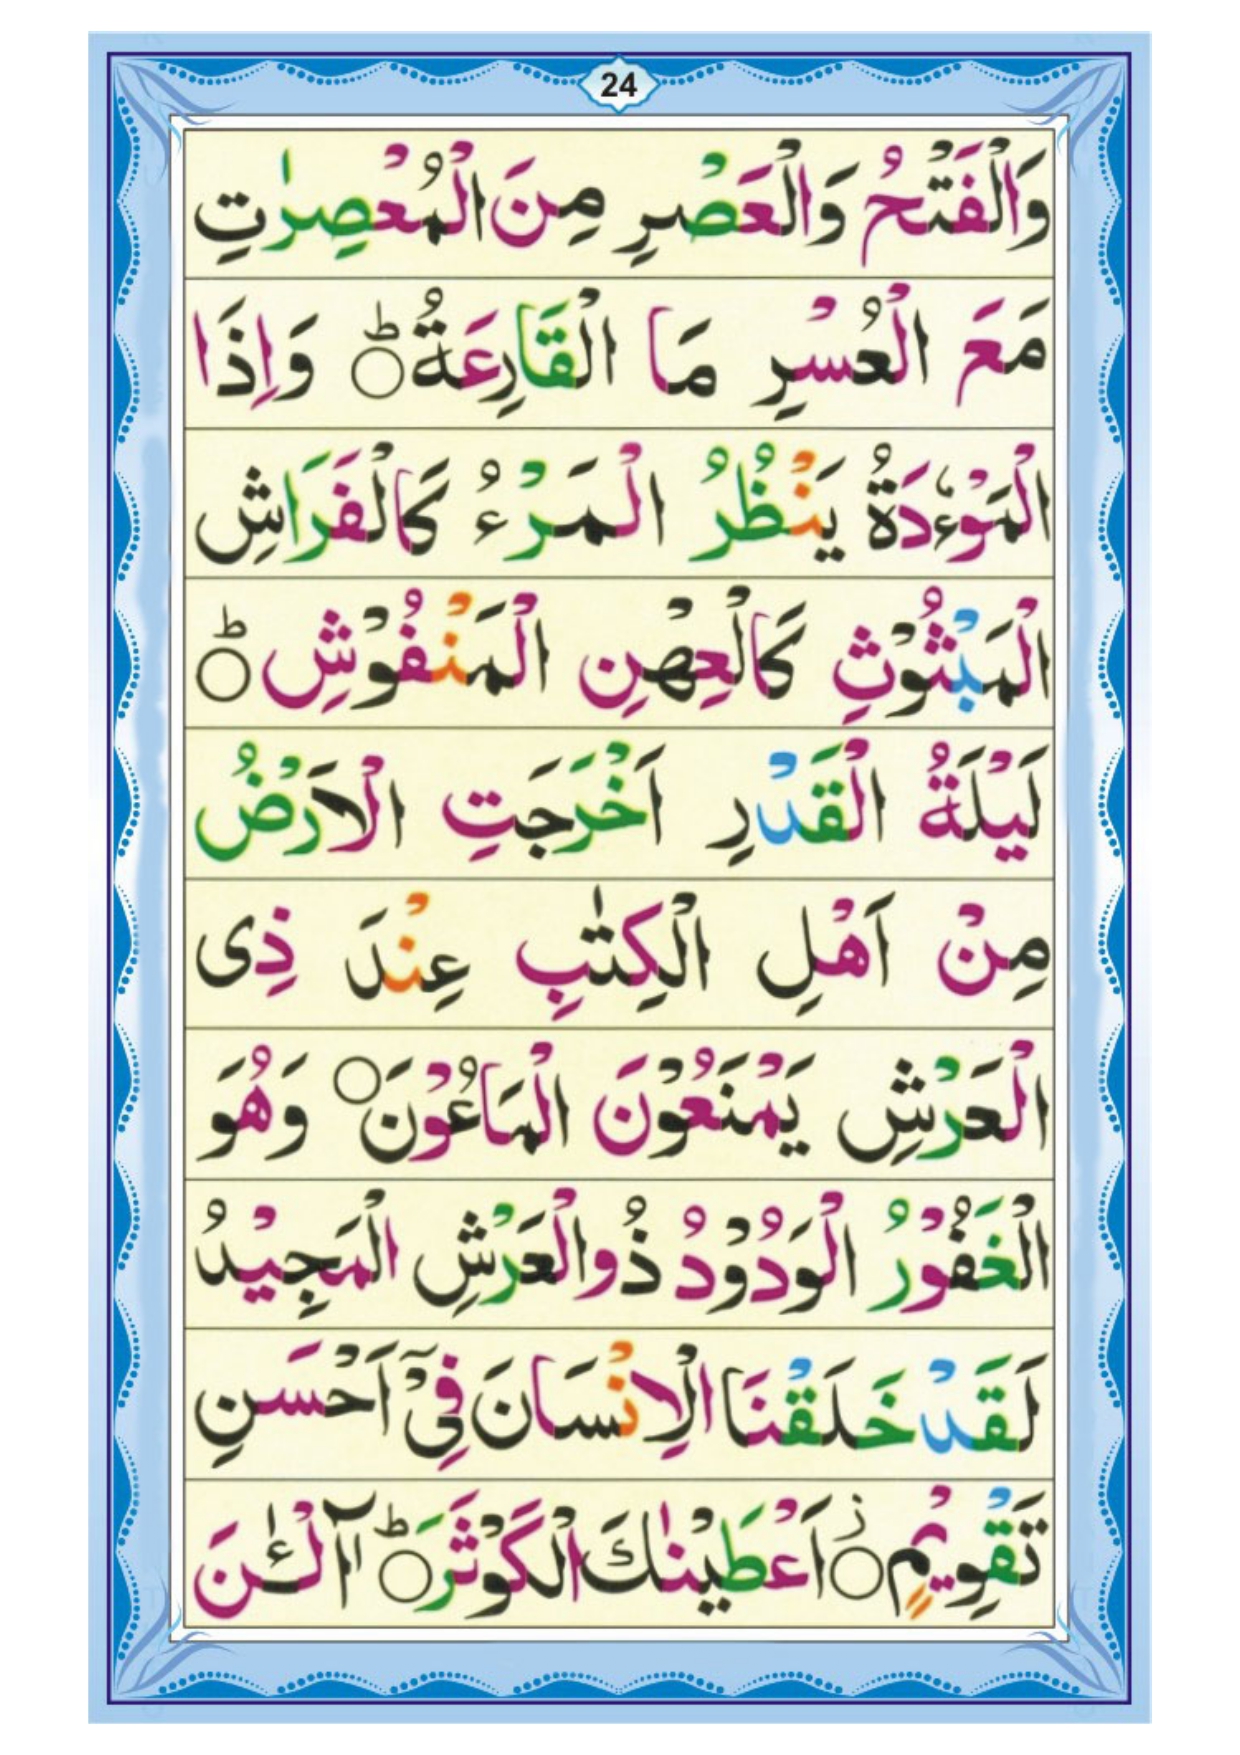 24
وَالْفَتْحُ وَالْعَصْرِ مِنَ الْمُعْصِرٰتِ
مَعَ الْعُسْرِ مَا الْقَارِعَةُ ؕ وَاِذَا
الْمَوْءٗدَةُ يَنْظُرُ الْمَرْءُ كَالْفَرَاشِ
الْمَبْثُوْثِ كَالْعِهْنِ الْمَنْفُوْشِ ؕ
لَيْلَةُ الْقَدْرِ اَخْرَجَتِ الْاَرْضُ
مِنْ اَهْلِ الْكِتٰبِ عِنْدَ ذِى
الْعَرْشِ يَمْنَعُوْنَ الْمَاعُوْنَ ۝ وَهُوَ
الْغَفُوْرُ الْوَدُوْدُ ذُوالْعَرْشِ الْمَجِيْدُ
لَقَدْ خَلَقْنَا الْاِنْسَانَ فِىْٓ اَحْسَنِ
تَقْوِيْمٍ ۝ز اَعْطَيْنٰكَ الْكَوْثَرَ ؕ آلْـٰٔنَ